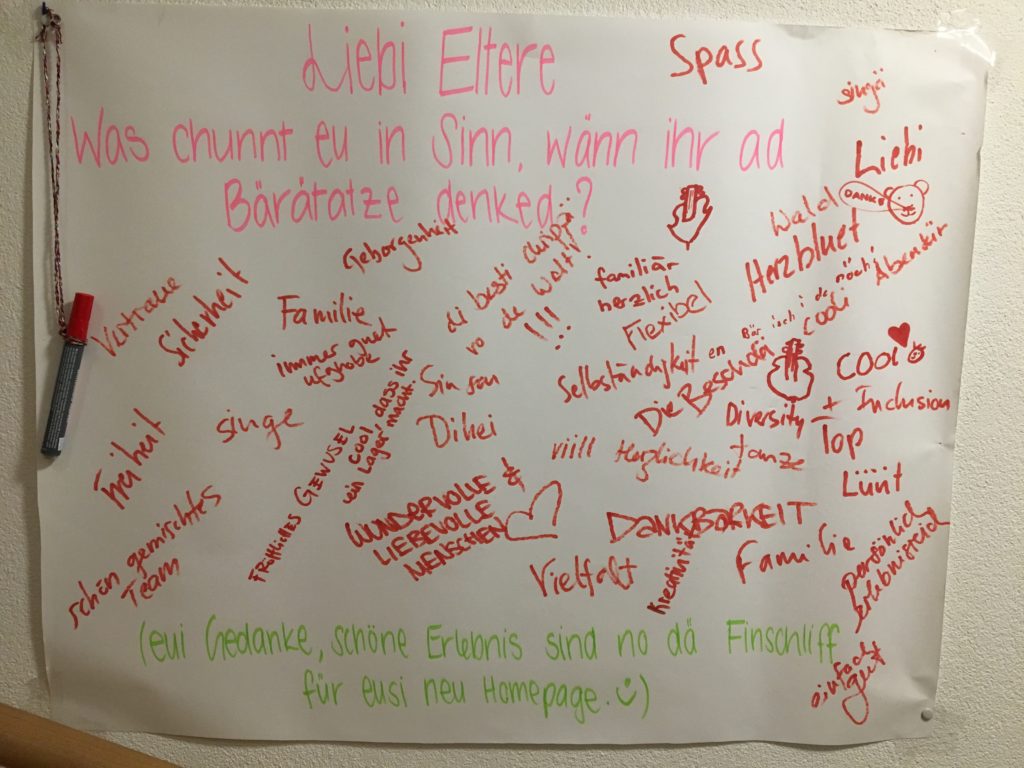 Liebi Eltere
Was chunnt eu in Sinn, wänn ihr ad
Bärätatze denked..?
Spass
singä
Liebi
Wald
DANKE
Herzbluet
Abentür
Geborgenheit
Vertraue
Sicherheit
Familie
immer guet
ufghobe
di besti
vo de Welt!
!!!
familiär
herzlich
Flexibel
Selbständigkeit
Die Beschotä
cooli
COOL
Diversity + Inclusion
Top
Lüüt
Freiheit
singe
FRÖHLICHES GEWUSEL
Cool, dass ihr
ein Lager macht.
Sin fan
Dihei
viill Herzlichkeit
tanze
WUNDERVOLLE &
LIEBEVOLLE
MENSCHEN
DANKBARKEIT
schön gemischtes
Team
Vielfalt
Kreativität
Familie
persönlich
Erlebnisreich
einfach
guet
(eui Gedanke, schöne Erlebnis sind no dä Finschliff
für eusi neu Homepage.)